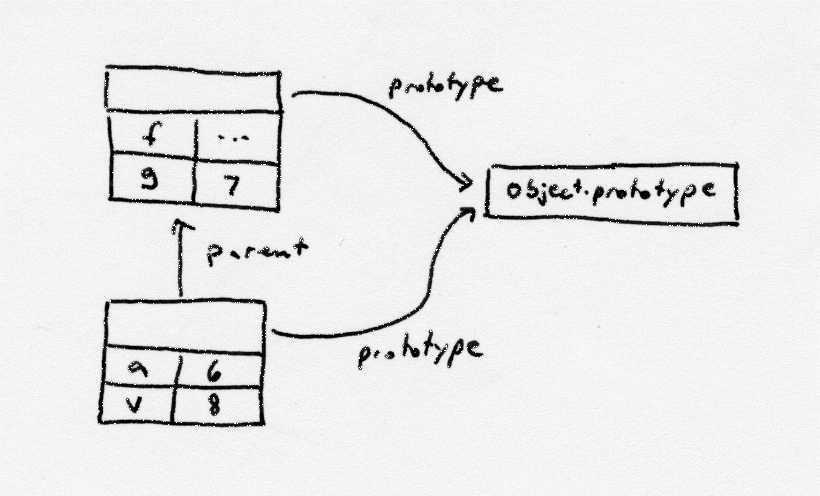 prototype
f ...
g 7
object.prototype
parent
prototype
a 6
v 8